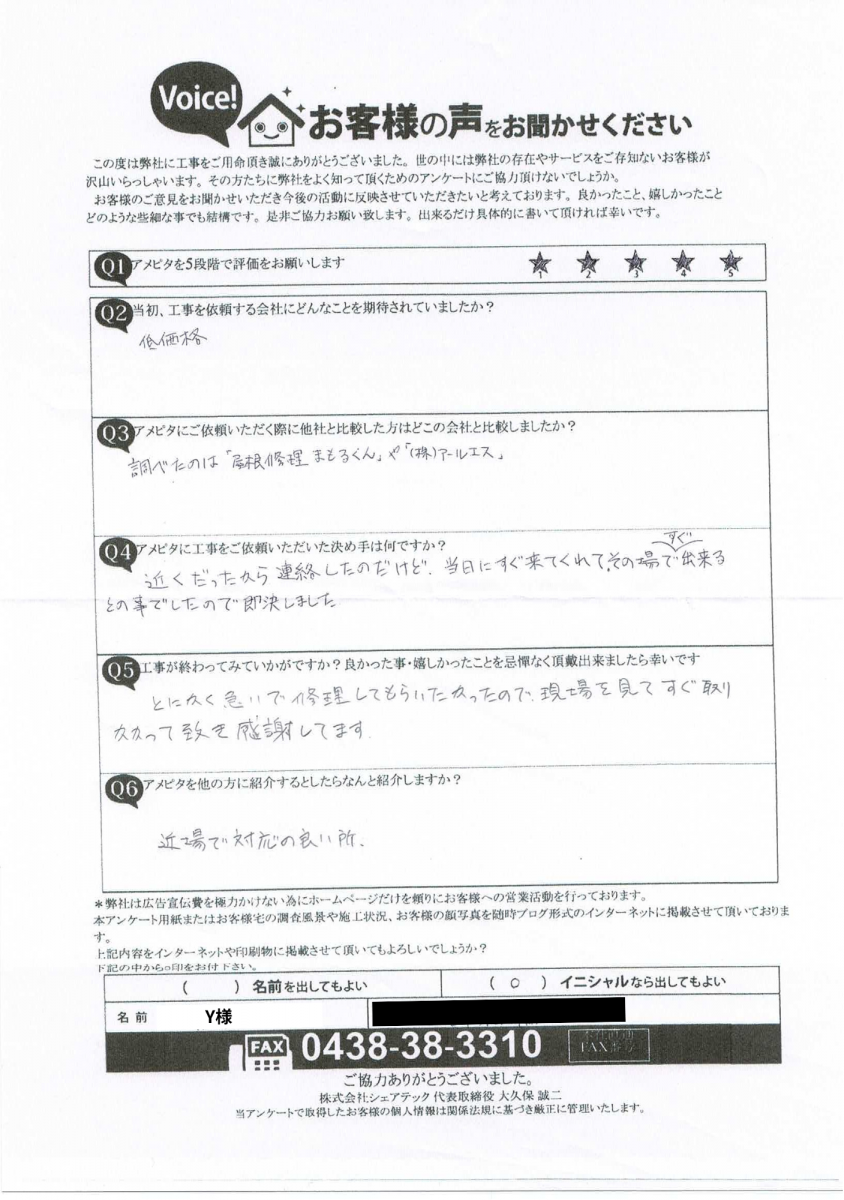 Voice!
お客様の声をお聞かせください
この度は弊社に工事をご用命頂き誠にありがとうございました。世の中には弊社の存在やサービスをご存知ないお客様が
沢山いらっしゃいます。その方たちに弊社をよく知って頂くためのアンケートにご協力頂けないでしょうか。
お客様のご意見をお聞かせいただき今後の活動に反映させていただきたいと考えております。良かったこと、嬉しかったこと
どのような些細な事でも結構です。是非ご協力お願い致します。出来るだけ具体的に書いて頂ければ幸いです。
Q1 アメピタを5段階で評価をお願いします ★ ★ ★ ★ ★
1 2 3 4 5
Q2 当初、工事を依頼する会社にどんなことを期待されていましたか?
低価格
Q3 アメピタにご依頼いただく際に他社と比較した方はどこの会社と比較しましたか?
調べたのは「屋根修理まもるくん」や「(株)アールエス」
Q4 アメピタに工事をご依頼いただいた決め手は何ですか?
すぐ
近くだったから連絡したのだけど、当日にすぐ来てくれて、その場で出来る
との事でしたので即決しました
Q5 工事が終わってみていかがですか?良かった事・嬉しかったことを忌憚なく頂戴出来ましたら幸いです
とにかく急いで修理してもらいたかったので、現場を見てすぐ取り
かかって致き感謝してます。
Q6 アメピタを他の方に紹介するとしたらなんと紹介しますか?
近場で対応の良い所.
*弊社は広告宣伝費を極力かけない為にホームページだけを頼りにお客様への営業活動を行っております。
本アンケート用紙またはお客様宅の調査風景や施工状況、お客様の顔写真を随時ブログ形式のインターネットに掲載させて頂いておりま
す。
上記内容をインターネットや印刷物に掲載させて頂いてもよろしいでしょうか?
下記の中から○印をお付下さい。
( ) 名前を出してもよい ( ○ ) イニシャルなら出してもよい
名前 Y様
FAX 0438-38-3310
ご協力ありがとうございました。
株式会社シェアテック 代表取締役 大久保 誠二
当アンケートで取得したお客様の個人情報は関係法規に基づき厳正に管理いたします。